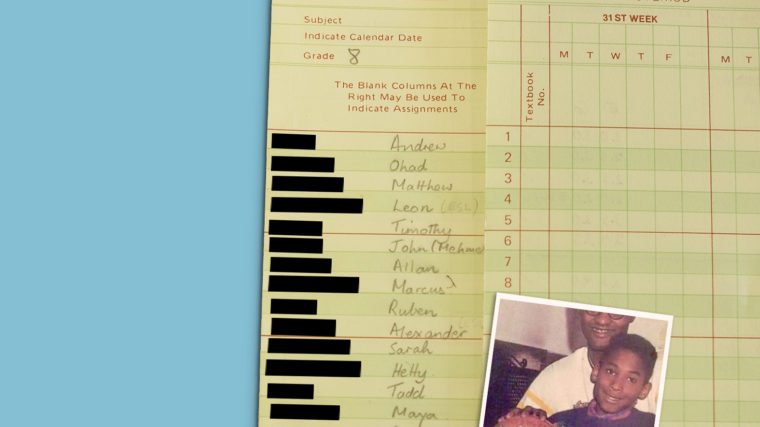 31ST WEEK
Subject
Indicate Calendar Date
Grade 8
M T W T F M T
The Blank Columns At The
Right May Be Used To
Indicate Assignments
Textbook
No.
Andrew 1
Ohad 2
Matthew 3
Leon (ESL) 4
Timothy 5
John (Mehme 6
Allan 7
Marcus 8
Ruben
Alexander
Sarah
Hetty
Tadd
Maya